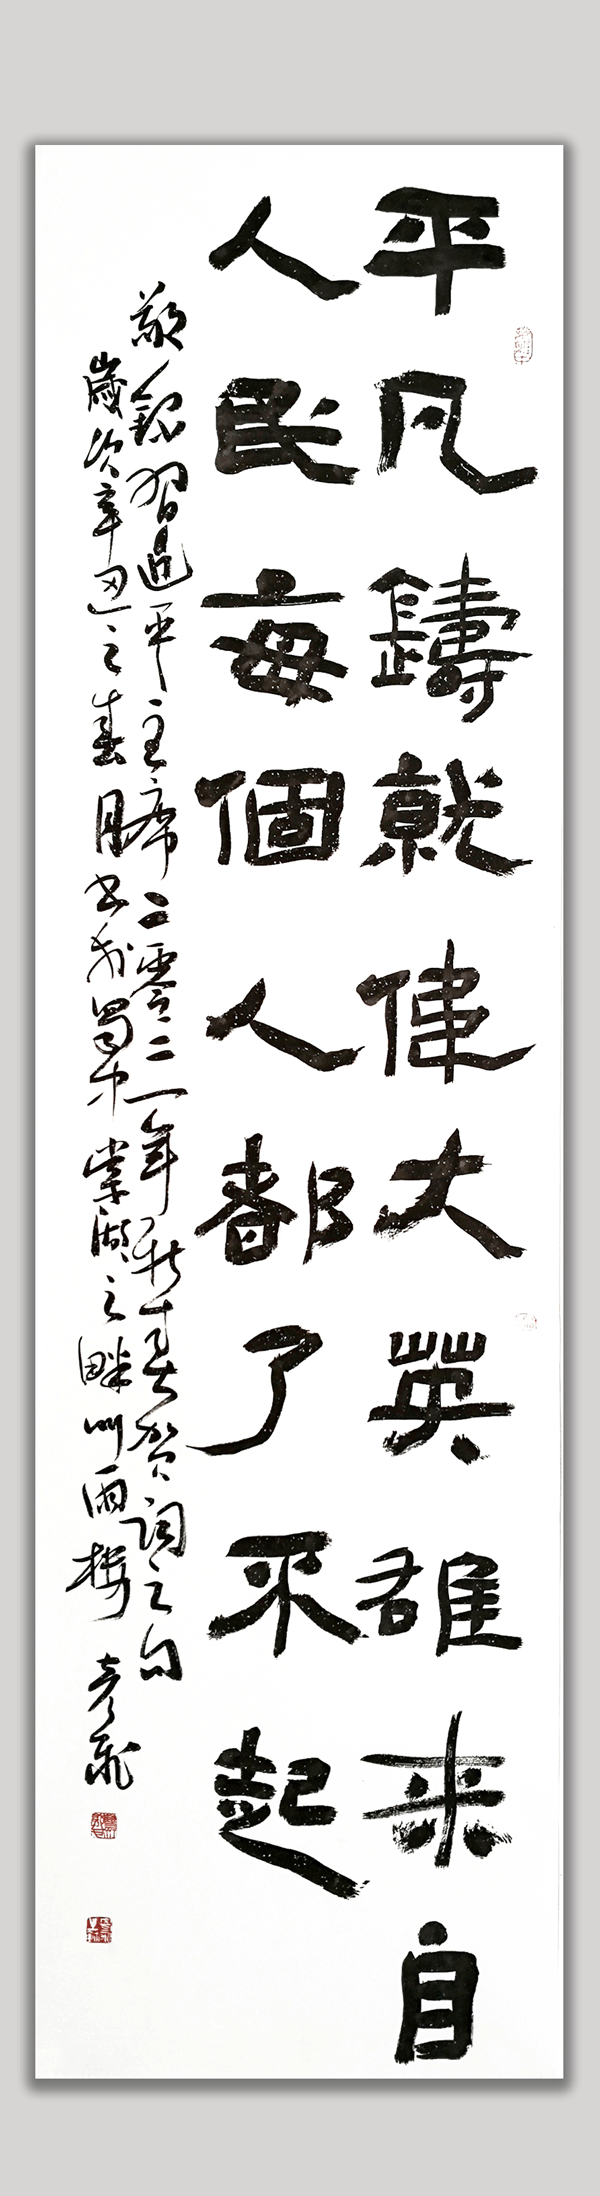 平凡鑄就偉大英雄来自
人民每個人都了不起
敬錄習近平主席二零二一年新春賀詞之句
歲次辛丑之春月书於蜀中棠湖之畔听雨楼 彦飛